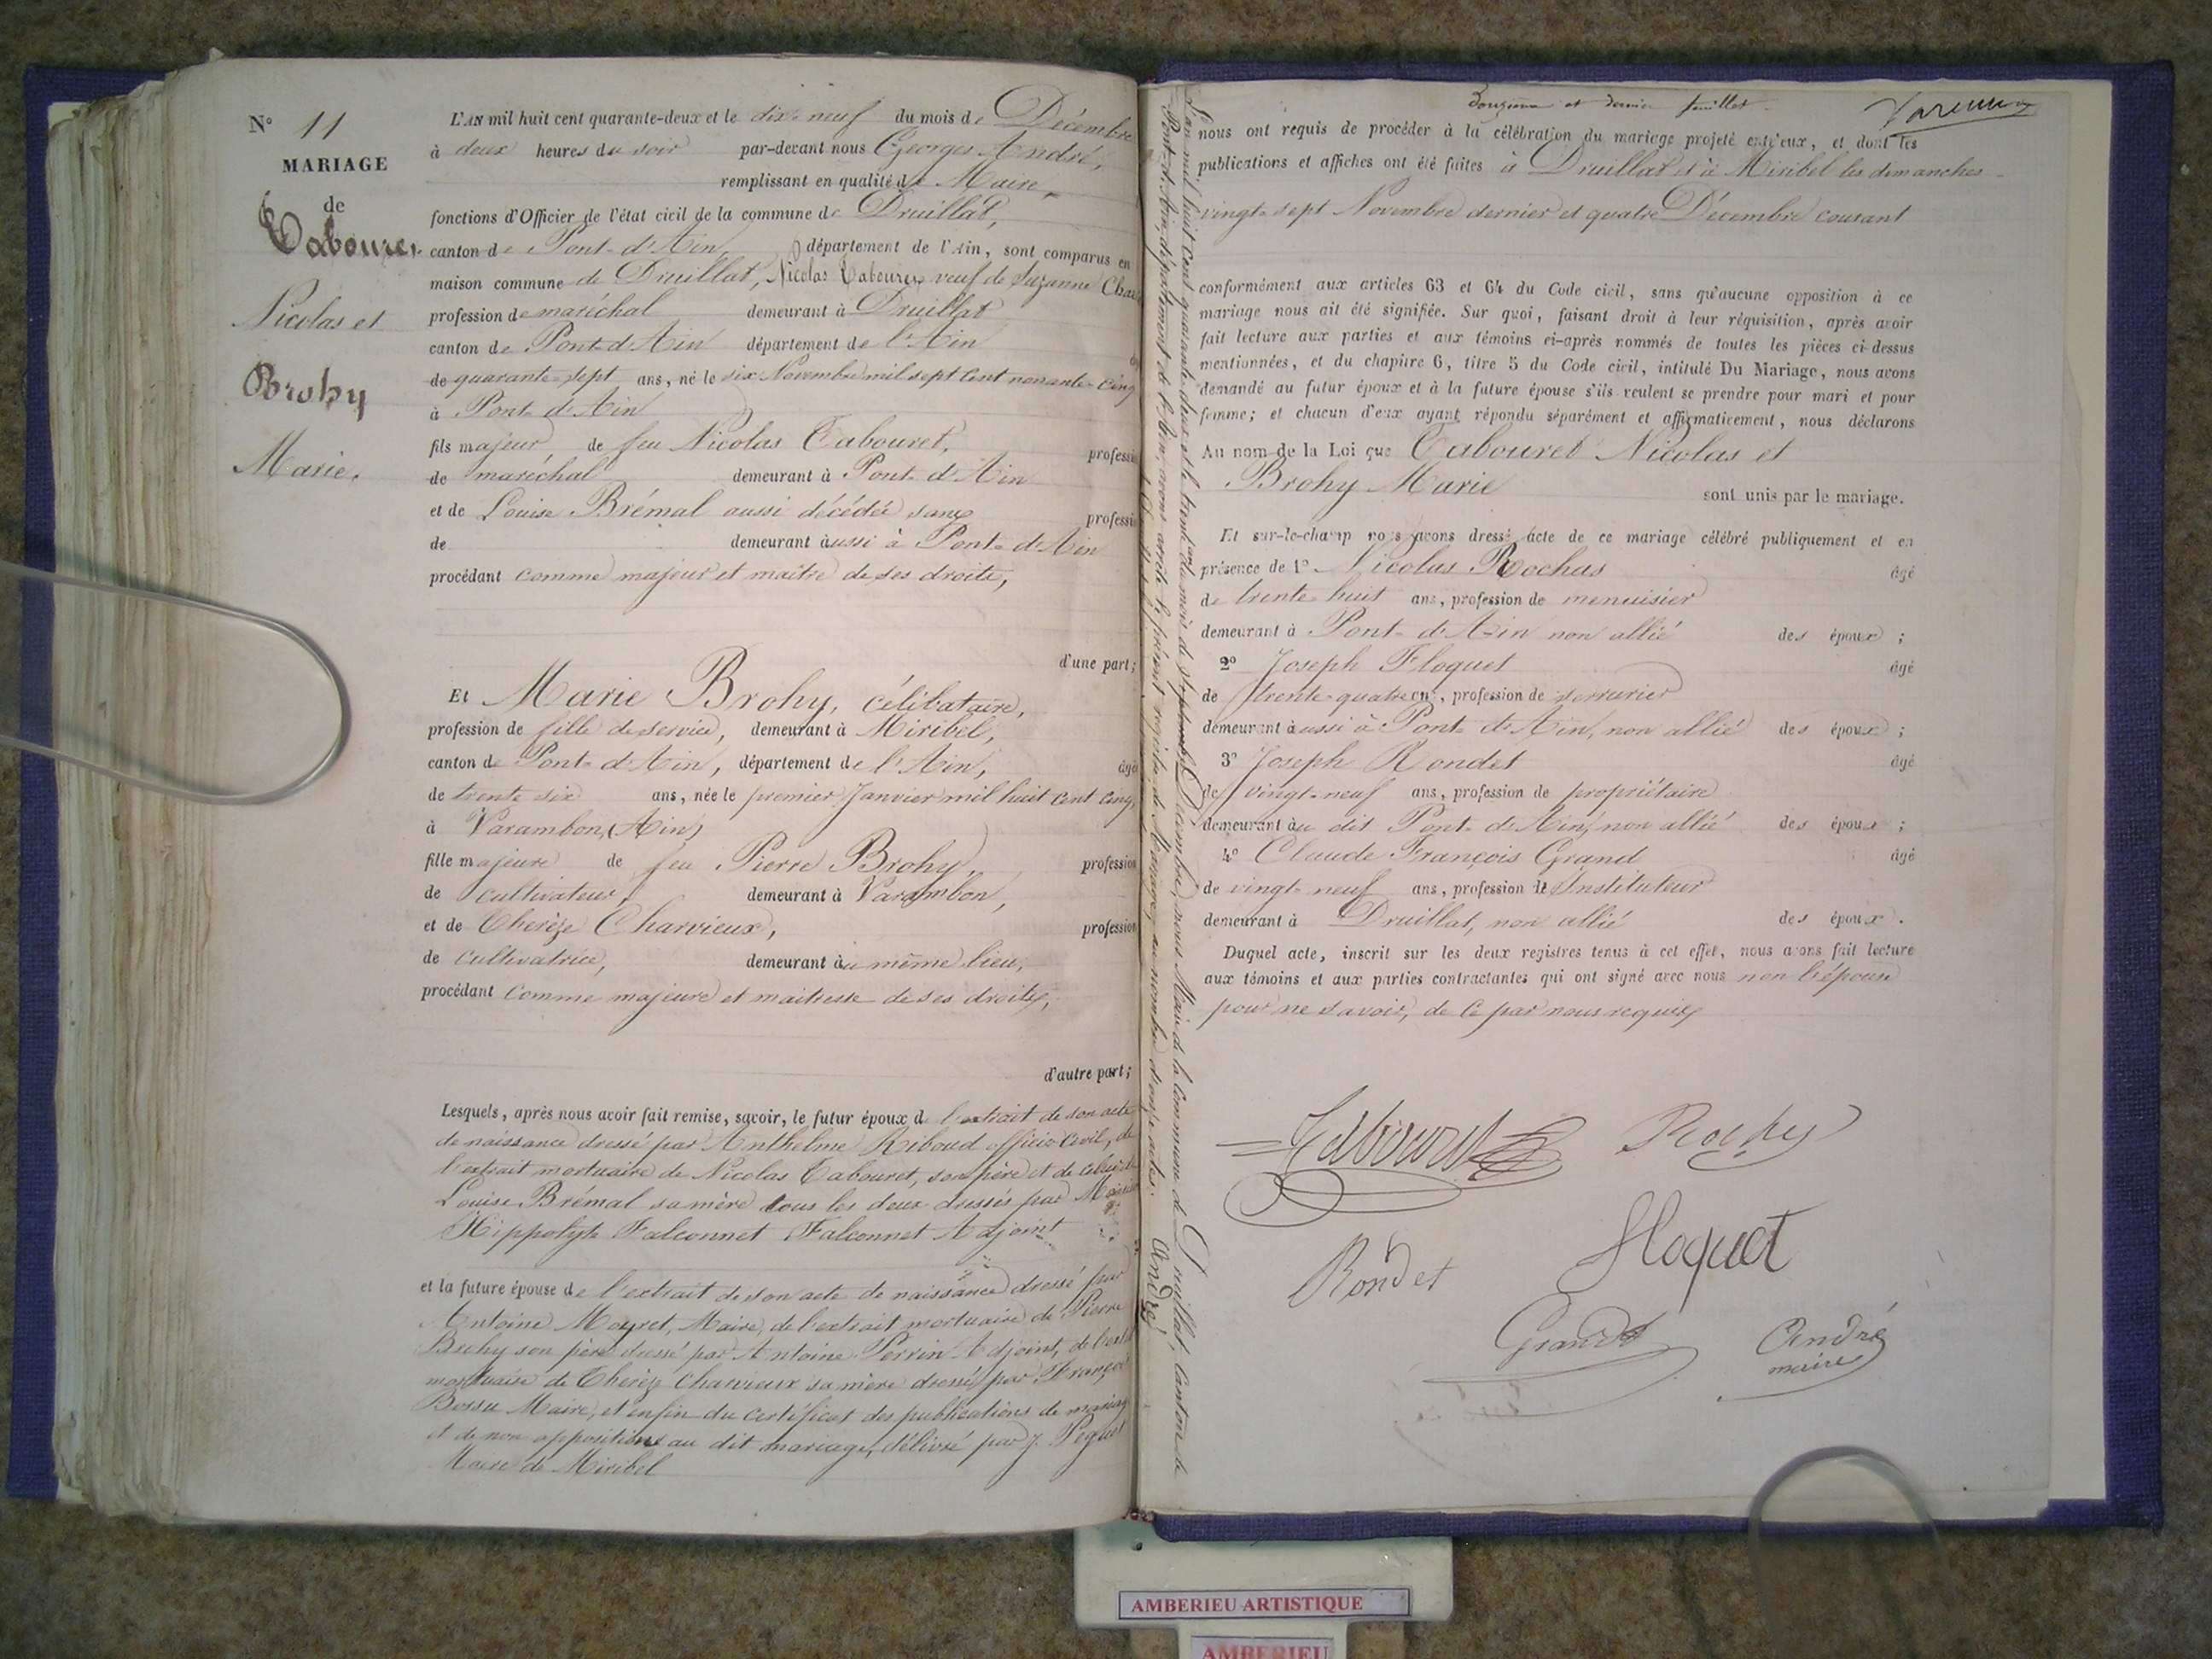 N° 11
MARIAGE
de
Tabouret
Nicolas et
Brohy
Marie.
L'AN mil huit cent quarante-deux et le dix-neuf du mois de Décembre
à deux heures du soir par-devant nous Georges André,
remplissant en qualité de Maire,
fonctions d'Officier de l'état civil de la commune de Druillat,
canton de Pont-d'Ain, département de l'Ain, sont comparus en
maison commune de Druillat, Nicolas Tabouret veuf de Suzanne
profession de maréchal demeurant à Druillat
canton de Pont-d'Ain département de l'Ain
de quarante-sept ans, né le six Novembre mil sept cent nonante-cinq
à Pont-d'Ain
fils majeur de feu Nicolas Tabouret, professi
de maréchal demeurant à Pont-d'Ain
et de Louise Brémal aussi décédée sans professi
de demeurant aussi à Pont-d'Ain
procédant comme majeur et maître de ses droits,
d'une part;
Et Marie Brohy, célibataire,
profession de fille de service, demeurant à Miribel,
canton de Pont-d'Ain, département de l'Ain, âgé
de trente six ans, née le premier Janvier mil huit cent cinq,
à Varambon, (Ain)
fille majeure de feu Pierre Brohy, profession
de cultivateur, demeurant à Varambon,
et de Therèze Charvieux, profession
de cultivatrice, demeurant au même lieu,
procédant comme majeure et maitresse de ses droits,
d'autre part;
Lesquels, après nous avoir fait remise, savoir, le futur époux d l'extrait de son acte
de naissance dressé par Anthelme Riboud officier Civil, de
l'extrait mortuaire de Nicolas Tabouret, son père et de celui de
Louise Brémal sa mère tous les deux dressés par
Hippolyte Falconnet Falconnet Adjoint
et la future épouse de l'extrait de son acte de naissance dressé par
Antoine Mayret, Maire, de l'extrait mortuaire de Pierre
Brohy son père dressé par Antoine Perrin Adjoint, de l'extrait
mortuaire de Therèze Charvieux sa mère dressé par François
Bossu Maire, et enfin du certificat des publications de mariage
et de non opposition au dit mariage, délivré par J. Péguet
Maire de Miribel
Douzième et dernier feuillet.
nous ont requis de procéder à la célébration du mariage projeté entr'eux, et dont les
publications et affiches ont été faites à Druillat et à Miribel les dimanches
vingt-sept Novembre dernier et quatre Décembre courant
conformément aux articles 63 et 64 du Code civil, sans qu'aucune opposition à ce
mariage nous ait été signifiée. Sur quoi, faisant droit à leur réquisition, après avoir
fait lecture aux parties et aux témoins ci-après nommés de toutes les pièces ci-dessus
mentionnées, et du chapitre 6, titre 5 du Code civil, intitulé Du Mariage, nous avons
demandé au futur époux et à la future épouse s'ils veulent se prendre pour mari et pour
femme; et chacun d'eux ayant répondu séparément et affirmativement, nous déclarons
Au nom de la Loi que Tabouret Nicolas et
Brohy Marie sont unis par le mariage.
Et sur-le-champ nous avons dressé acte de ce mariage célébré publiquement et en
présence de 1° Nicolas Rochas âgé
de trente-huit ans, profession de menuisier
demeurant à Pont-d'Ain non allié des époux ;
2° Joseph Floquet âgé
de trente-quatre ans, profession de serrurier
demeurant aussi à Pont-d'Ain, non allié des époux ;
3° Joseph Rondet âgé
de vingt-neuf ans, profession de propriétaire
demeurant au dit Pont-d'Ain, non allié des époux ;
4° Claude François Grand âgé
de vingt-neuf ans, profession d'Instituteur
demeurant à Druillat, non allié des époux.
Duquel acte, inscrit sur les deux registres tenus à cet effet, nous avons fait lecture
aux témoins et aux parties contractantes qui ont signé avec nous non l'épouse
pour ne savoir, de ce par nous requis
Tabouret
Rondet
Floquet
Grand
André
maire
L'an mil huit cent quarante-deux et le trente un du mois de Décembre, nous Maire de la commune de Druillat, canton de
Pont-d'Ain, département de l'Ain, avons arrêté le présent registre de Mariages au nombre d'onze actes.
André
AMBERIEU ARTISTIQUE
AMBERIEU